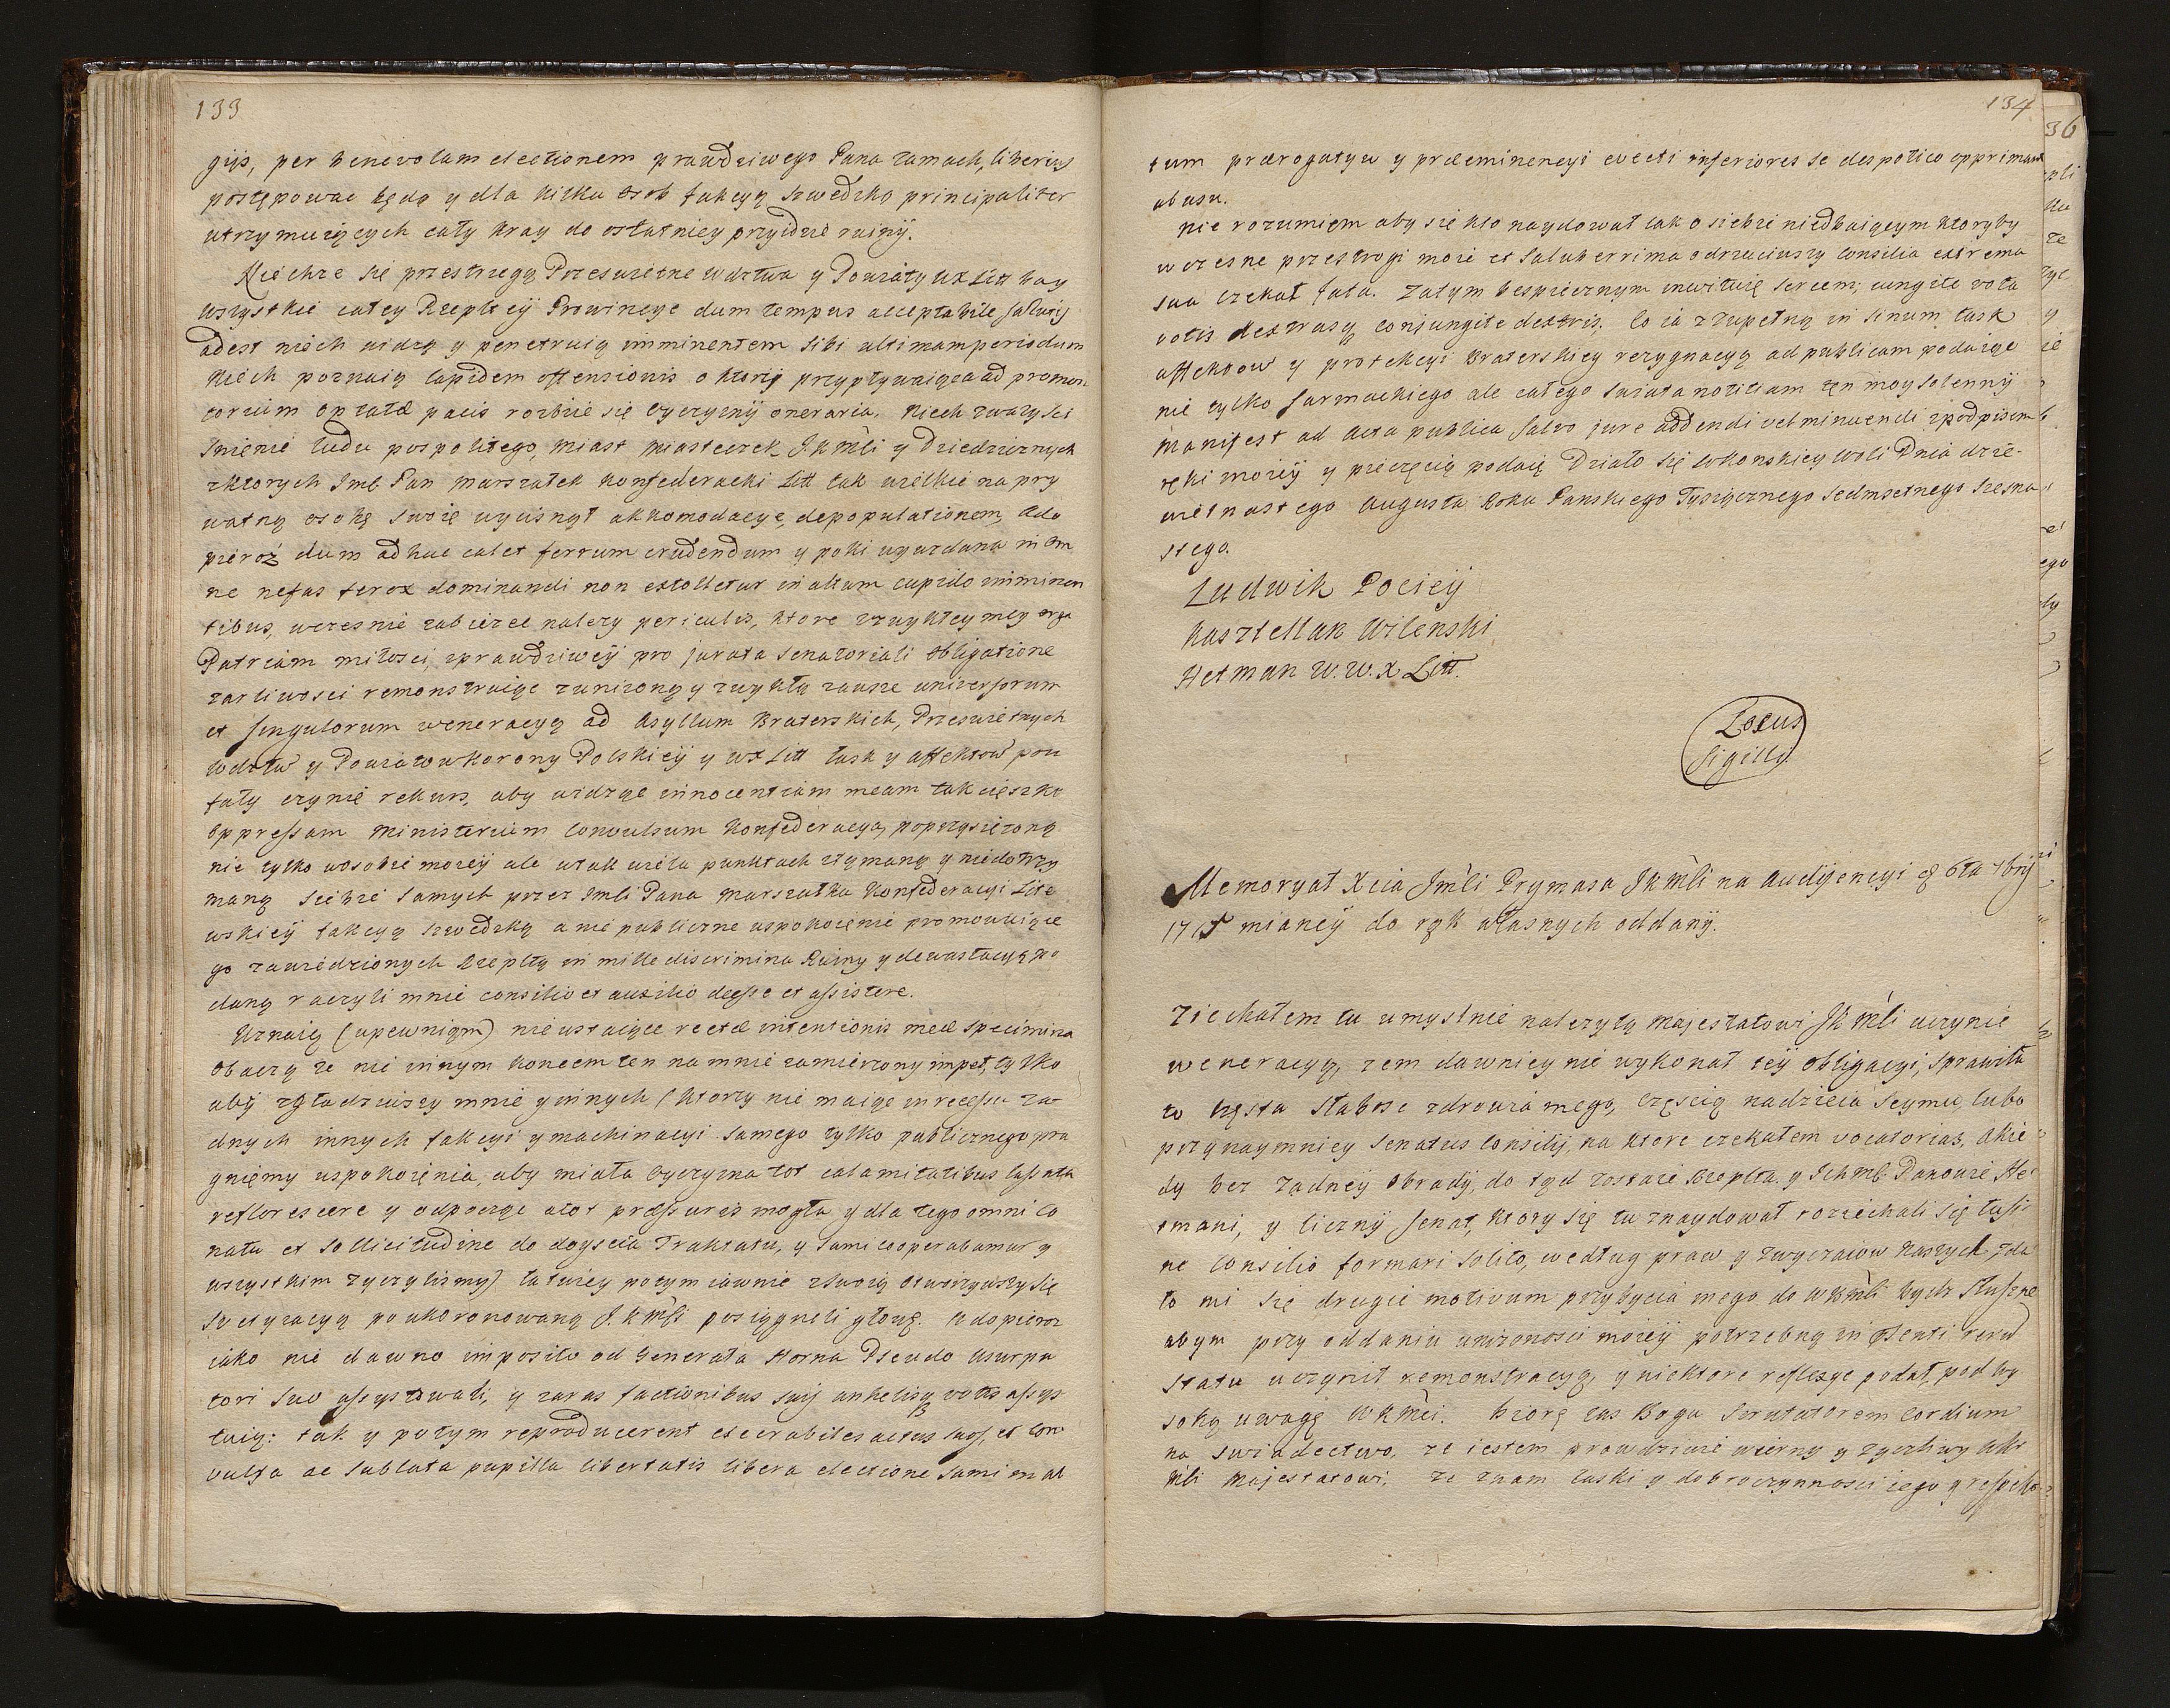 133
gijs, per benevolam electionem prawdziwego Pana zamach, liberius
postępowac będą y dla kilku osob fakcyą szwedzko principaliter
utrzymuiących cały kray do ostatniey przyidzie ruiny.
Niechze się przestrzegą Przeswietne Wdztwa y Powiaty WX Litt
wszystkie całey Rzeplteij Prowincye dum tempus acceptabile salutis
adest niech widzą y penetruią imminentem sibi ultimam periodum
Niech poznaią lapidem offensionis o ktorij przypływaiąca ad promon
torium optatæ pacis rozbiie się Oyczyznij oneraria. Niech zwazy sci
snienie ludu pospolitego, miast miasteczek J.K.Mci y Dziedzicznych
zktorych Jmc Pan Marszałek Konfederacki Litt tak wielkie na pry
watną osobę swoię wycisnął akkomodacye, depopulationem, Ado
pieroz dum adhuc calet ferrum cudendum y poki wyuzdana in om
ne nefas ferox dominandi non extolletur in altum cupido imminen
tibus, wczesnie zabiezec nalezy periculis, ktore zzwykłey mey erga
Patriam miłosci, zprawdziweij pro jurata senatoriali obligatione
zarliwosci remonstruiąc zunizoną y zwykłą zawsze universorum
et singulorum weneracyą ad Asyllum Braterskich, Przeswietnych
Wdztw y Powiatow Korony Polskieij y WX Litt łask y affektow pou
fały czynię rekurs, aby widząc innocentiam meam tak cięszko
oppressam Ministerium convulsum Konfederacyą poprzysiezoną
nie tylko wosobie moieij ale wtak wielu punktach złymaną y niedotrzy
maną Siebie samych przez Jmci Pana Marszałka Konfederacyi Lite
wskieij fakcyą szwedzką a nie publiczne uspokoienie promowuiące
go zawiedzionych Rzepltą in mille discrimina Ruiny y dewastacyą po
daną raczyli mnie consilio et auxilio deesse et assistere.
Uznaią (upewniąm) nieustaiące rectæ intentionis meæ specimina
obaczą ze nie innym koncem ten na mnie zamierzony impet, tylko
abij zgładziwszy mnie y innych (ktorzy nie maiąc in recessu za-
dnych innych fakcyi y machinacyi samego tylko publicznego pra
gniemy uspokoięnia, aby miała Oyczyzna tot calamitatibus lassata
reflorescere y odpocząc atot pressuris mogła y dla tego omni co
natu et sollicitudine do doyscia Traktatu, y sami cooperabamur y
wszystkim zyczylismy) łatwiey potym iawnie zswoią otworzywszy się
po ukoronowaną J.K.Mci posiągneli głowę. A dopieroz
iako nie dawno imposito od Generała Horna Pseudo Usurpa
tori suo assystowali, y zaras factionibus suis anhelisq votis assys
tuią: tak y potym reproducerent execrabiles actus suos, et con
vulsa ac sublata pupilla libertatis libera electione sami in al
134
tum prærogatyw y præeminencyi evecti inferiores se despotico opprimant
abusu.
Nie rozumięm aby się kto naydował tak o siebie niedbaiącym ktoryby
wczesne przestrogi moie et saluberrima odrzuciwszy consilia extrema
sua czekał fata. Zatym bespiecznym inwituię sercem; iungite vota
votis dextrasq conjungite dextris. Co ia zzupełną in sinum łask
affektow y protekcyi Braterskiey rezygnacyą ad publicam podaiąc
nie tylko sarmackiego ale całego swiata notitiam ten moy solennij
Manifest ad Acta publica salvo jure addendi vel minuendi zpodpisem
ręki moieij y pieczęcią podaię Działo się Wkonskiey Woli Dnia dzie-
wietnastego Augusta Roku Panskiego Tysiącznego Sedmsetnego szesna
stego.
Ludwik Pocieij
Kasztellan Wilenski
Hetman W. W. X Litt.
Locus
Sigilli
Memoryał Xcia Jmci Prymasa JKMci na Audijencyi 6ta 7brij
171 mianeij do rąk własnych oddanij.
Ziechałem tu umyslnie nalezytą Majestatowi JKMci uczynic
weneracyą, zem dawniey nie wykonał teij obligacyi, sprawiła
to częsta słabosc zdrowia mego, częscią nadzieia Seymu, lubo
przynaymniey Senatus Consilij, na ktore czekałem vocatorias. A kie
dy bez zadneij obradij, do tąd zostaie Rzeplta. y Ichmc Panowie He
tmani, y licznij senat, ktory się tu znaydował roziechali się tusi
ne consilio formari solito, według praw y zwyczaiow naszych, zda
ło mi się drugie motivum przybycia mego do WKMci bydz słuszne
abym przy oddaniu unizonosci moieij potrzebną in psenti rerum
statu uczynił remonstracyą, y niektore reflexye podał, pod wy
soką uwagę WKMci. biorę zas Boga Scrutatorem Cordium
na swiadectwo, ze iestem prawdziwie wierny y zyczliwy WK
Mci Majestatowi: ze znam łaski y dobroczynnosci iego y respekt